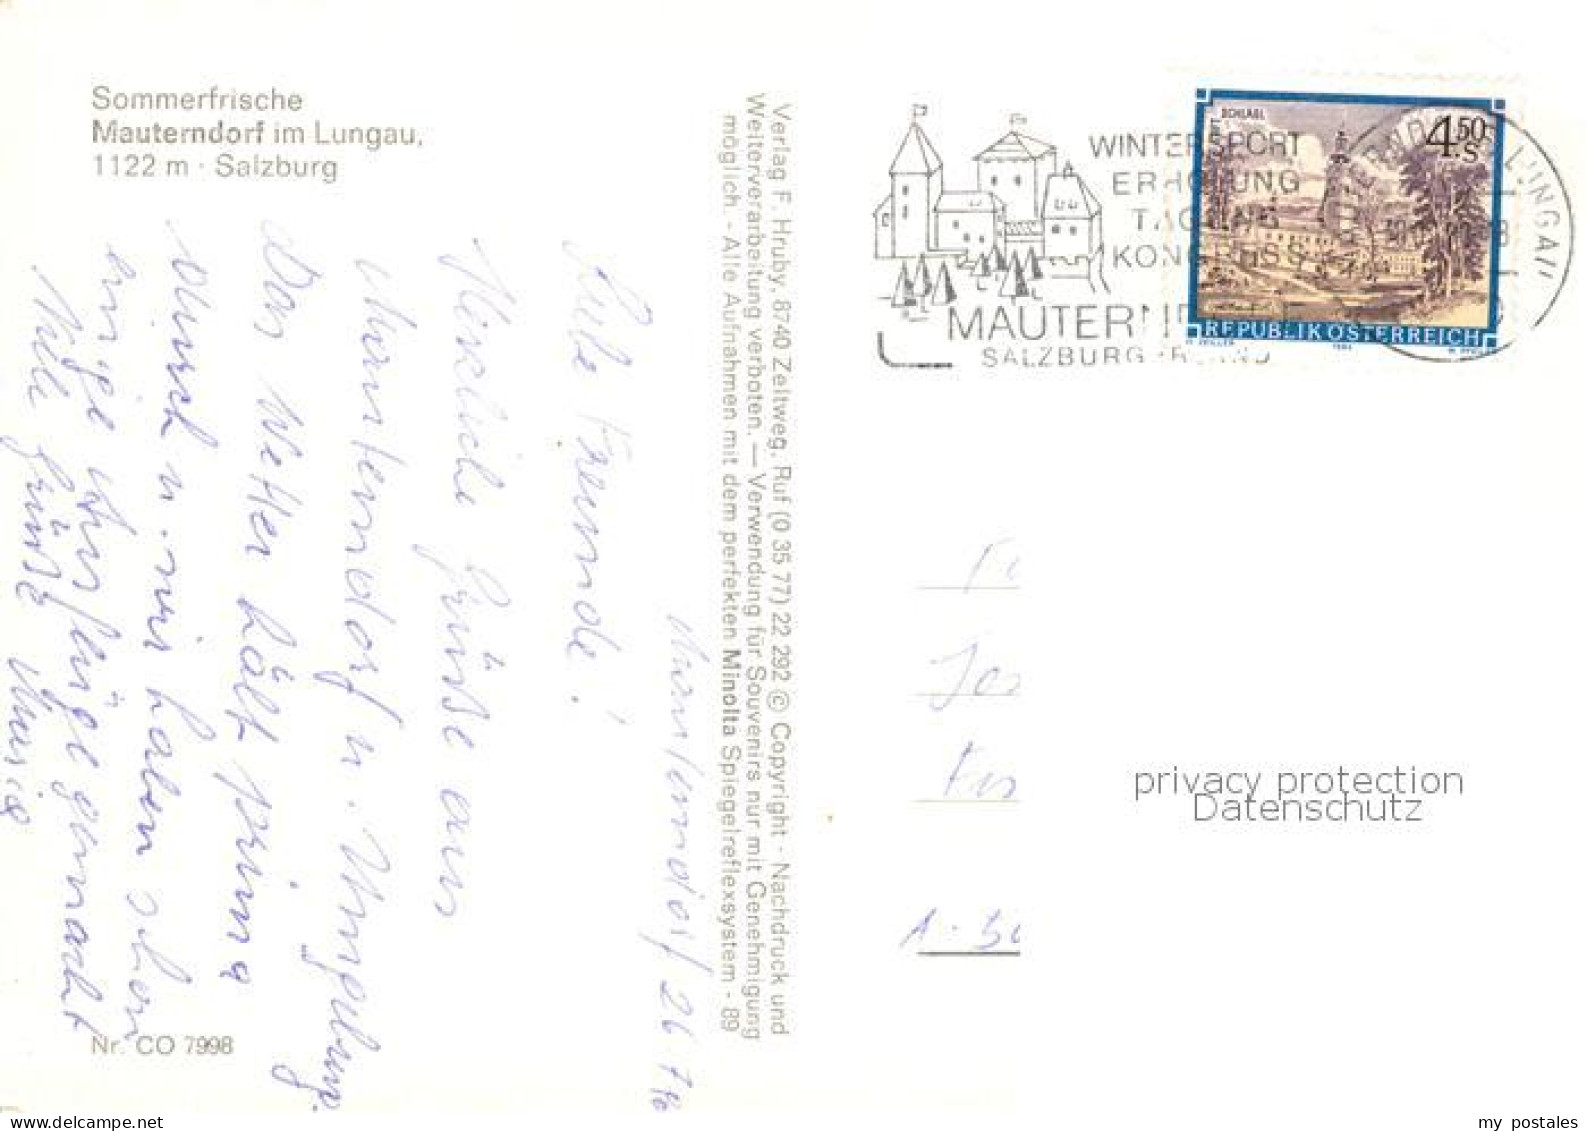 Sommerfrische
Mauterndorf im Lungau,
1122 m · Salzburg
WINTERSPORT
ERHOLUNG
TAGUNG
KONGRESS
MAUTERND
SALZBURGERLAND
STIFT SCHLÄGL
4.50
S
REPUBLIK ÖSTERREICH
LUNGAU
Verlag F. Hruby, 8740 Zeltweg, Ruf (0 35 77) 22 292 © Copyright - Nachdruck und
Weiterverarbeitung verboten. — Verwendung für Souvenirs nur mit Genehmigung
möglich. - Alle Aufnahmen mit dem perfekten Minolta Spiegelreflexsystem - 89
Mauterndorf 26.7.
Liebe Freunde!
Herzliche Grüße aus
Mauterndorf u. Umgebung.
Das Wetter hält prima
durch u. wir haben schon
einige Ausflüge gemacht
Viele Grüße
A-
privacy protection
Datenschutz
Nr. CO 7998
my postales